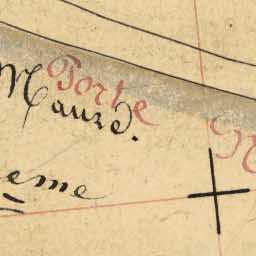 Porte
Maure.
eme